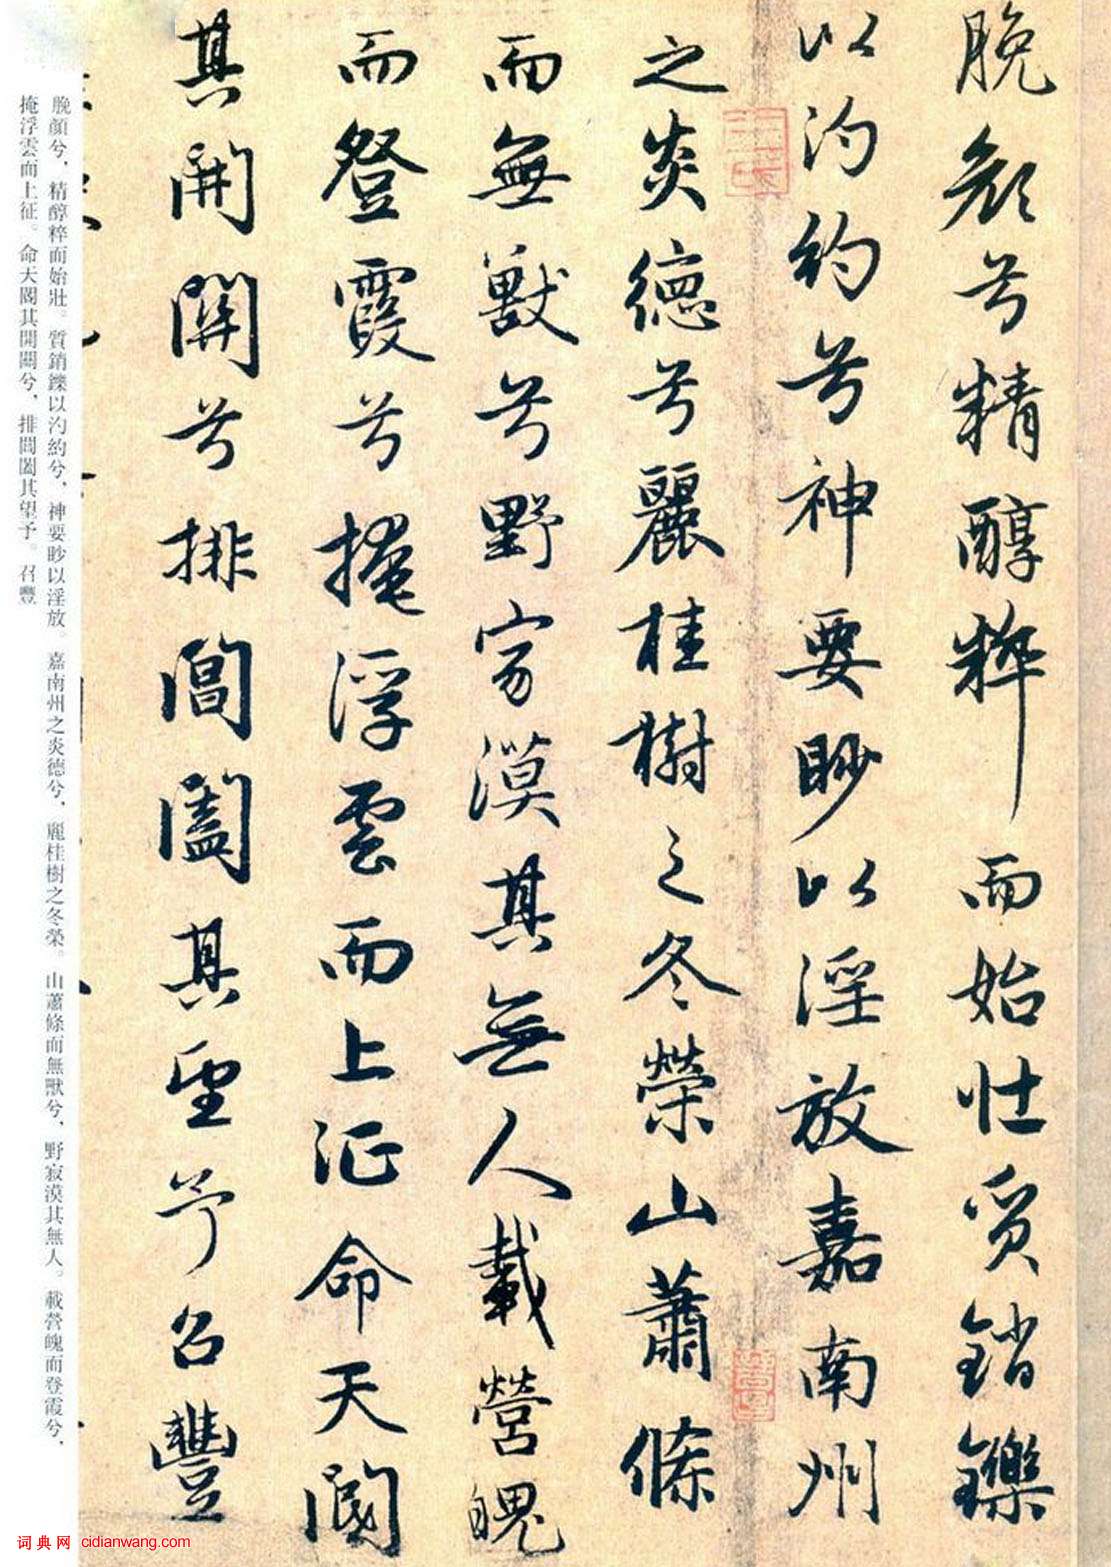 脕顏兮精醇粹而始壯質銷鑠
以汋約兮神要眇以淫放嘉南州
之炎德兮麗桂樹之冬榮山蕭條
而無獸兮野寂漠其無人載營魄
而登霞兮掩浮雲而上征命天閽
其開關兮排閶闔其望予召豐
脕顏兮，精醇粹而始壯。質銷鑠以汋約兮，神要眇以淫放。嘉南州之炎德兮，麗桂樹之冬榮。山蕭條而無獸兮，野寂漠其無人。載營魄而登霞兮，
掩浮雲而上征。命天閽其開關兮，排閶闔其望予。召豐
词典网 cidianwang.com